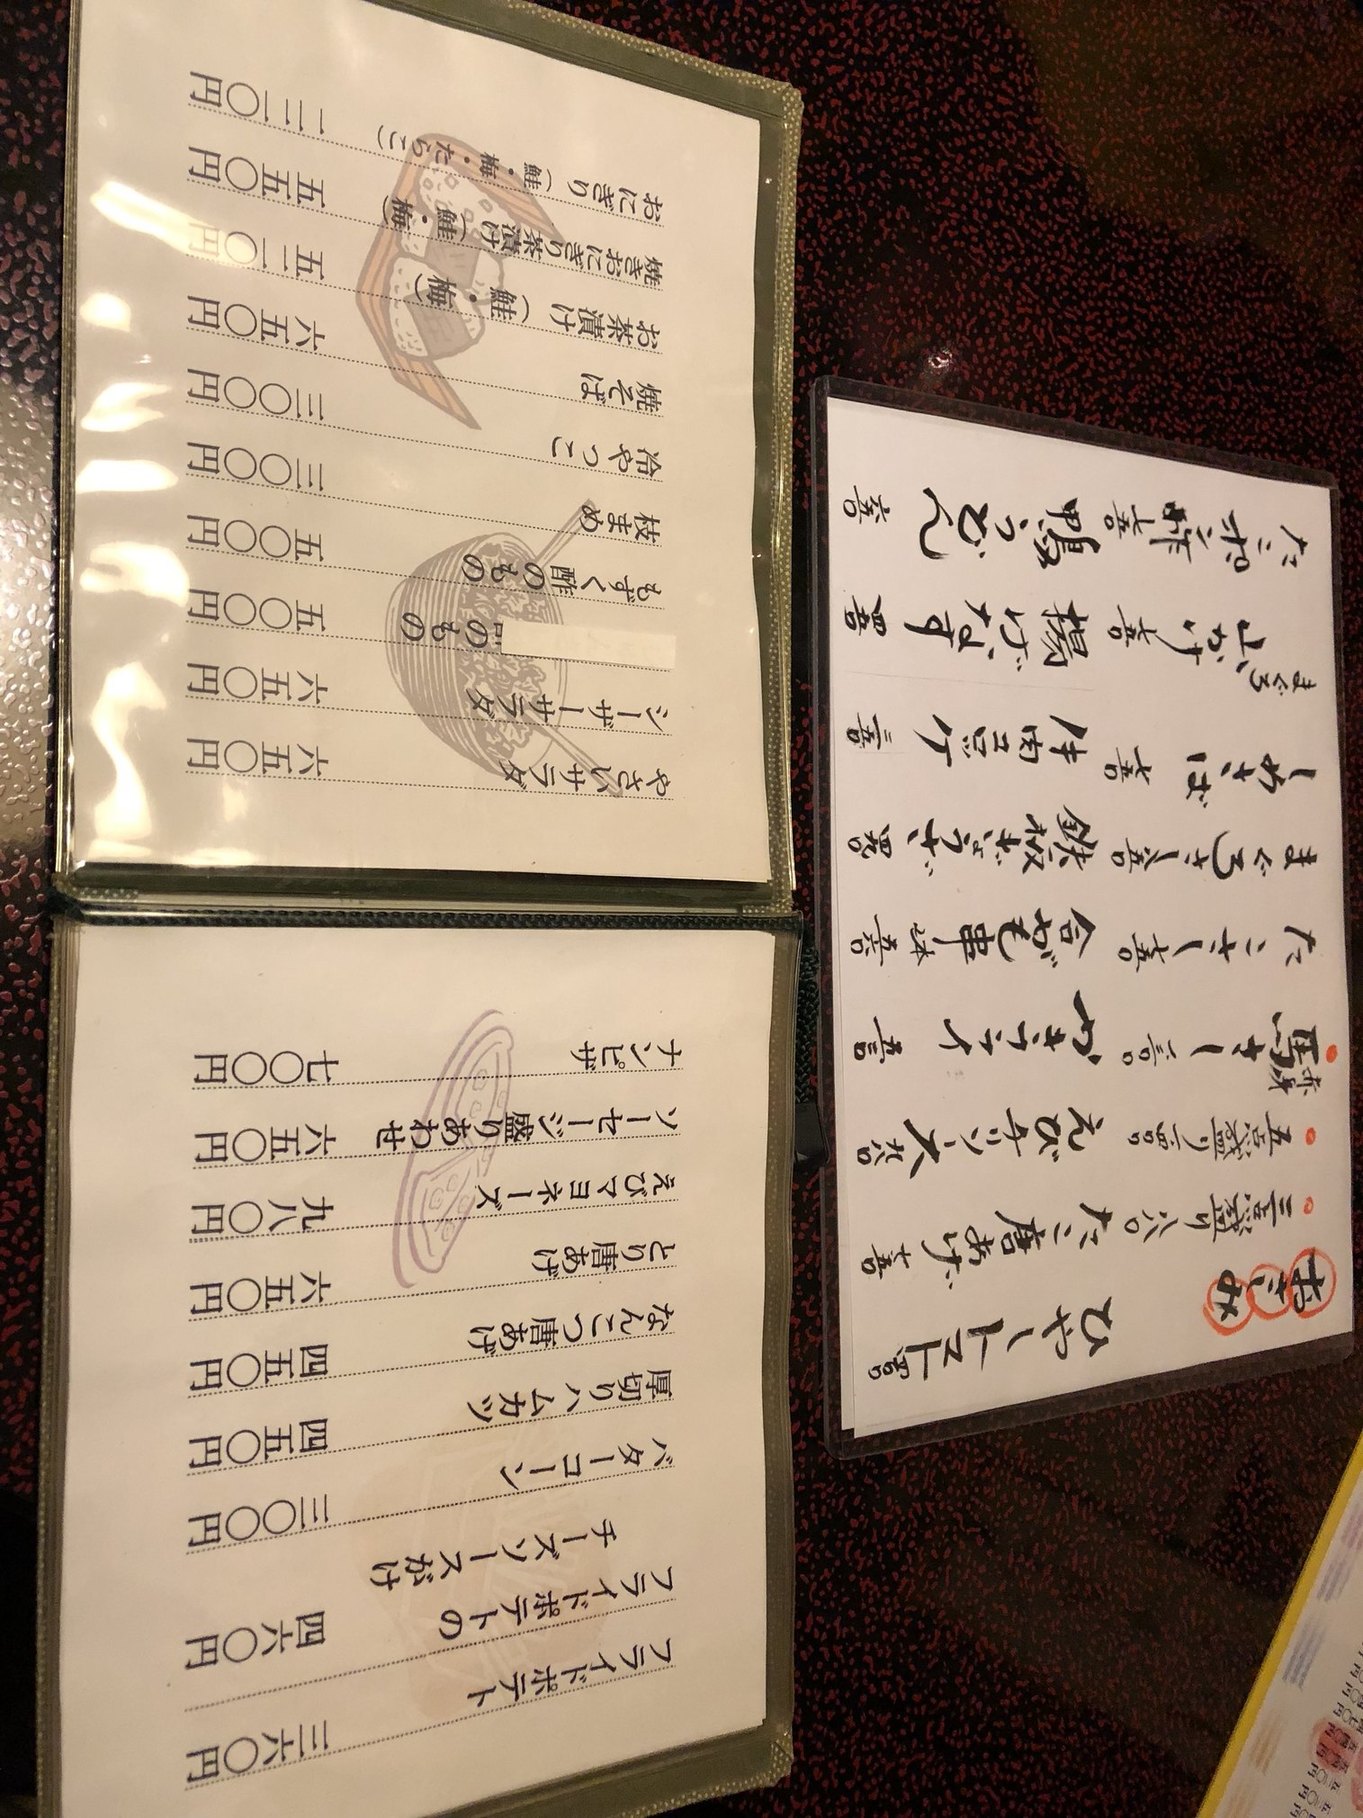 フライドポテト 三六〇円
フライドポテトの
チーズソースがけ 四六〇円
バターコーン 三〇〇円
厚切りハムカツ 四五〇円
なんこつ唐あげ 四五〇円
とり唐あげ 六五〇円
えびマヨネーズ 九八〇円
ソーセージ盛りあわせ 六五〇円
ナンピザ 七〇〇円
やさいサラダ 六五〇円
シーザーサラダ 六五〇円
のもの 五〇〇円
もずく酢のもの 五五〇円
枝まめ 三〇〇円
冷やっこ 三〇〇円
焼そば 六五〇円
お茶漬け（鮭・梅） 五二〇円
焼きおにぎり茶漬け（鮭・梅） 五五〇円
おにぎり（鮭・梅・たらこ） 二三〇円
おさしみ
三点盛り
五点盛り
赤身
馬さし
たこさし
まぐろさし
しめさば
まぐろ
山かけ
たこポン酢
ひやしトマト
たこ唐あげ
えびチリソース
かきフライ
合がも串
鉄板ぎょうざ
牛肉コロッケ
揚げなす
鴨うどん